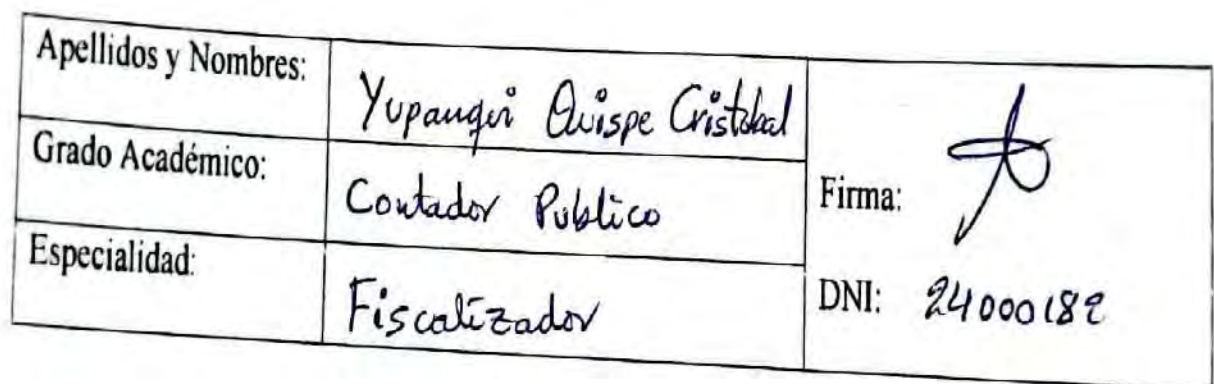 Apellidos y Nombres: Yupanqui Quispe Cristobal
Grado Académico: Contador Publico
Especialidad: Fiscalizador
Firma:
DNI: 24000182